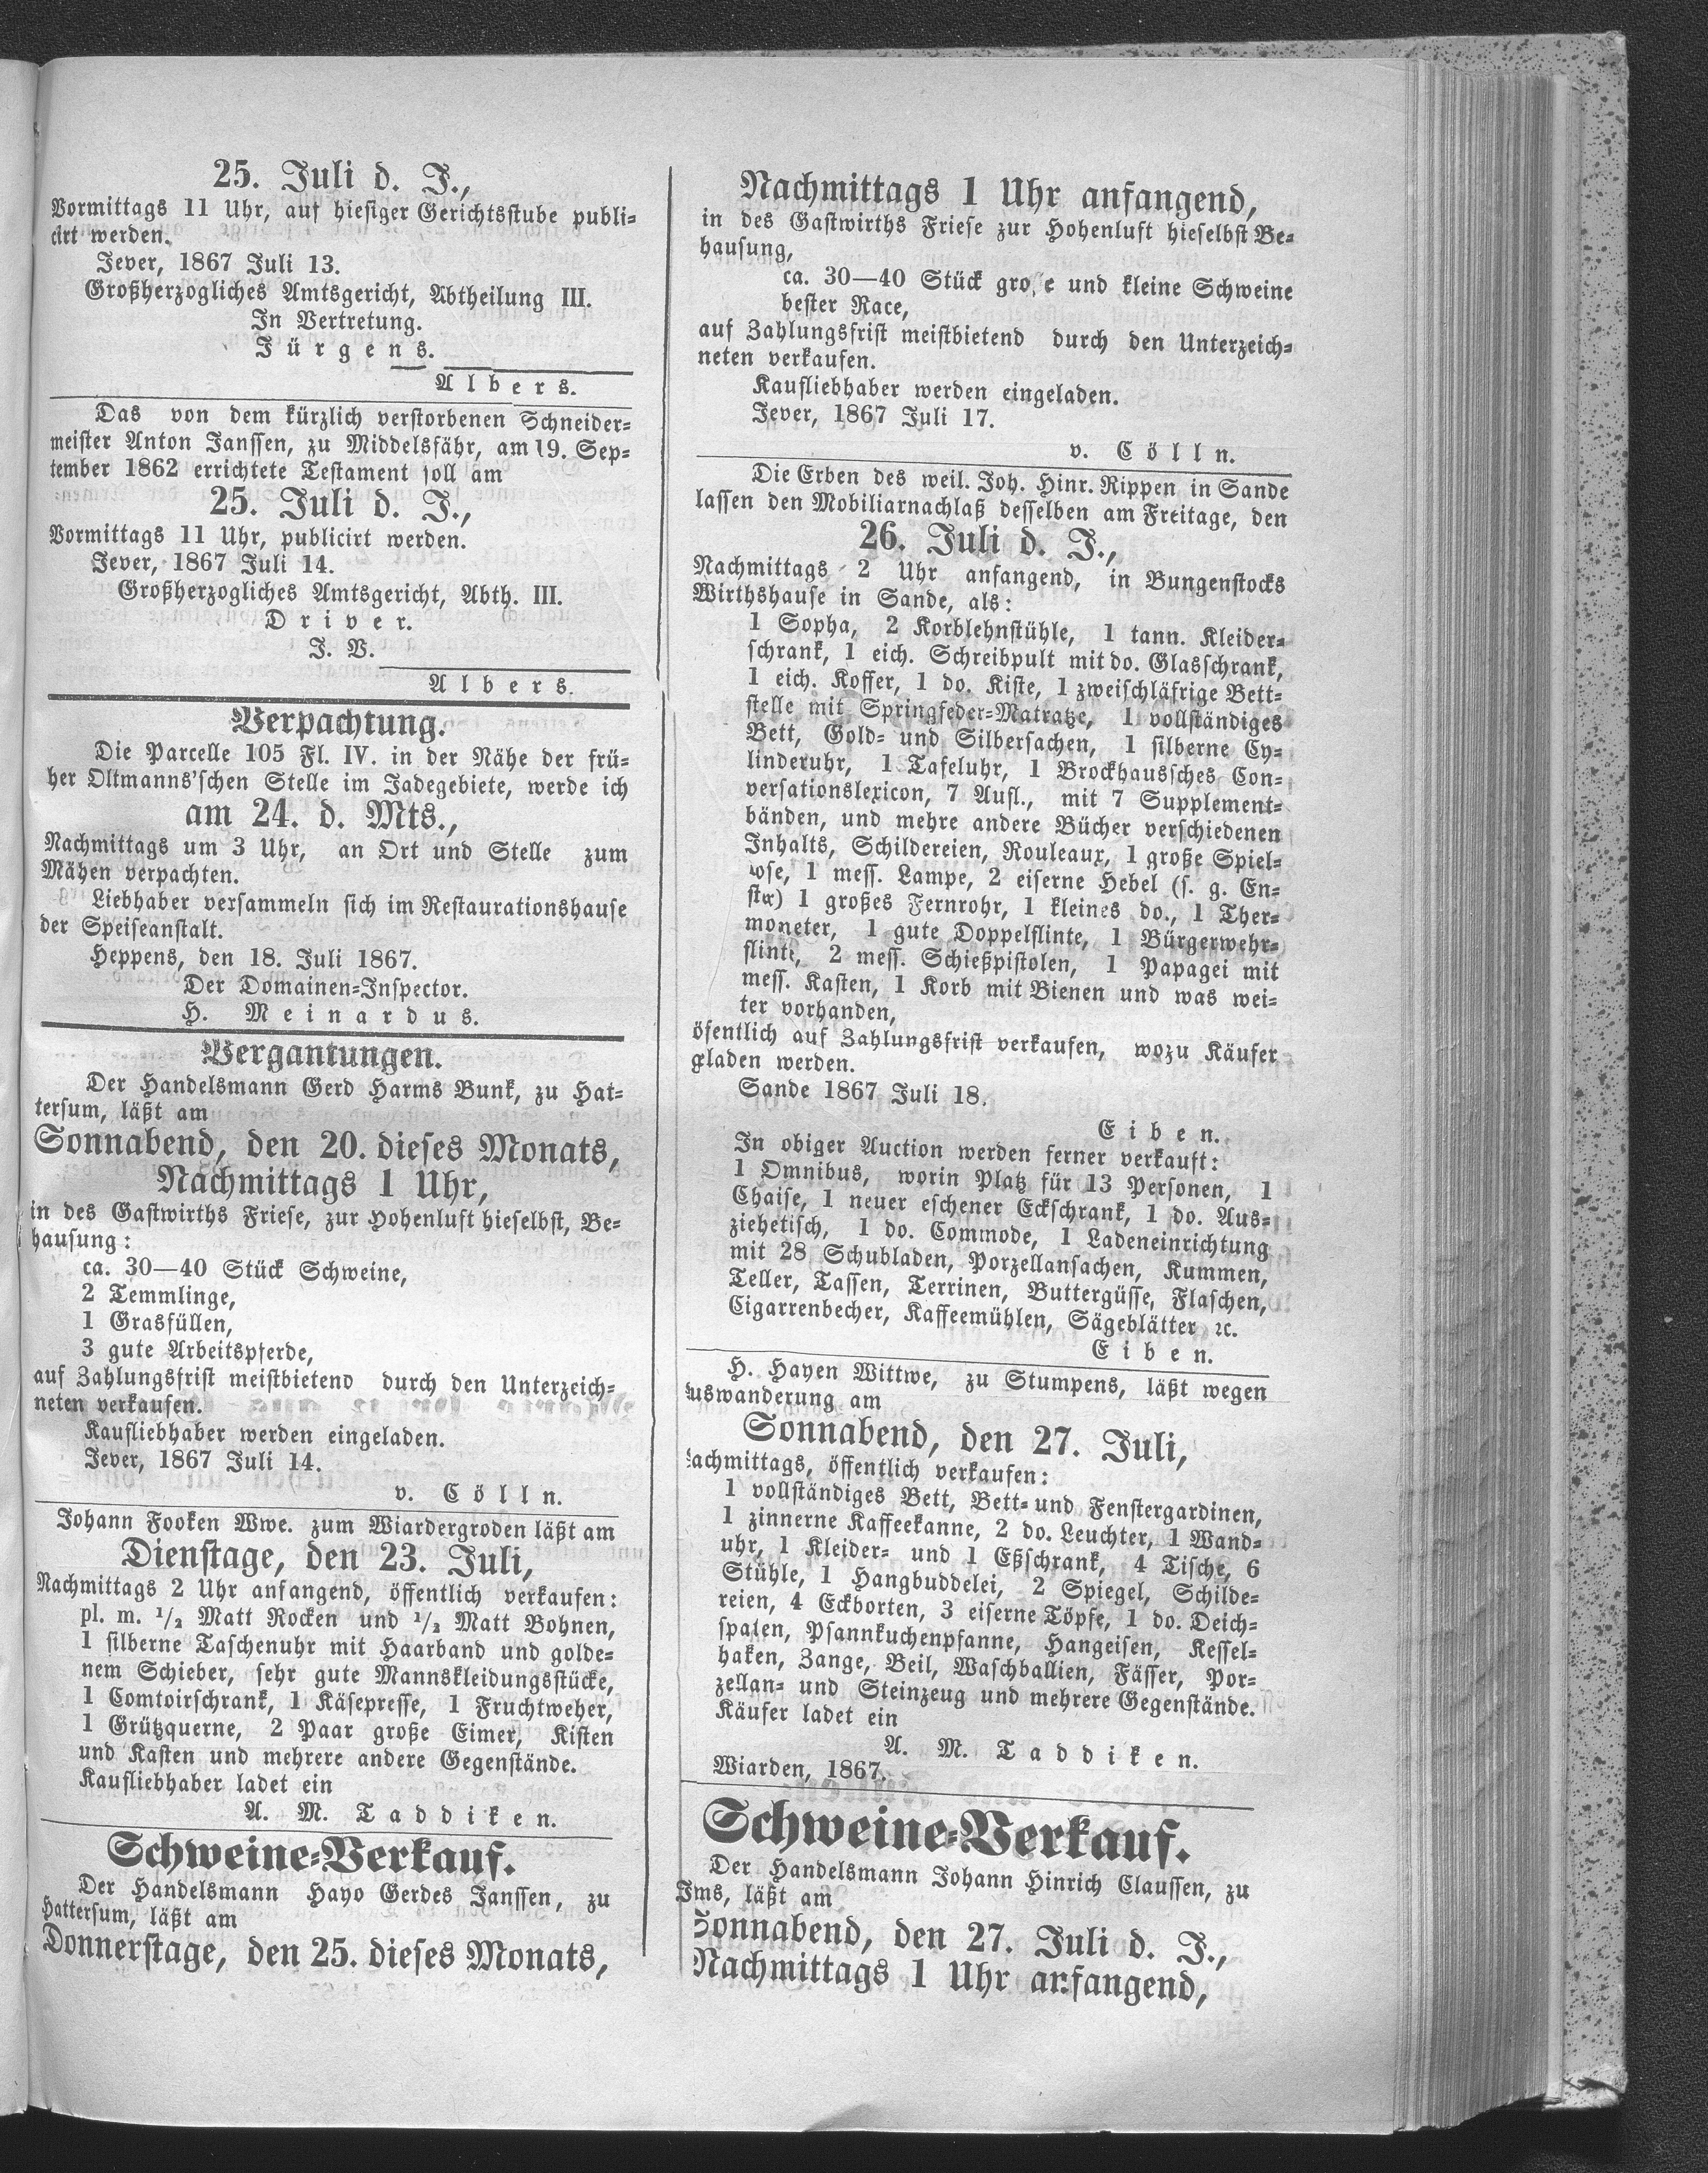 25. Juli d. J.,
Vormittags 11 Uhr, auf hiesiger Gerichtsstube publi-
cirt werden.
Jever, 1867 Juli 13.
Großherzogliches Amtsgericht, Abtheilung III.
In Vertretung.
Jürgens.
Albers.
Das von dem kürzlich verstorbenen Schneider-
meister Anton Janssen, zu Middelsfähr, am 19. Sep-
tember 1862 errichtete Testament soll am
25. Juli d. J.,
Vormittags 11 Uhr, publicirt werden.
Jever, 1867 Juli 14.
Großherzogliches Amtsgericht, Abth. III.
Driver.
J. V.
Albers.
Verpachtung.
Die Parcelle 105 Fl. IV. in der Nähe der frü-
her Oltmanns'schen Stelle im Jadegebiete, werde ich
am 24. d. Mts.,
Nachmittags um 3 Uhr, an Ort und Stelle zum
Mähen verpachten.
Liebhaber versammeln sich im Restaurationshause
der Speiseanstalt.
Heppens, den 18. Juli 1867.
Der Domainen-Inspector.
H. Meinardus.
Vergantungen.
Der Handelsmann Gerd Harms Bunk, zu Hat-
tersum, läßt am
Sonnabend, den 20. dieses Monats,
Nachmittags 1 Uhr,
in des Gastwirths Friese, zur Hohenluft hieselbst, Be-
hausung:
ca. 30—40 Stück Schweine,
2 Temmlinge,
1 Grasfüllen,
3 gute Arbeitspferde,
auf Zahlungsfrist meistbietend durch den Unterzeich-
neten verkaufen.
Kaufliebhaber werden eingeladen.
Jever, 1867 Juli 14.
v. Cölln.
Johann Fooken Wwe. zum Wiardergroden läßt am
Dienstage, den 23. Juli,
Nachmittags 2 Uhr anfangend, öffentlich verkaufen:
pl. m. 1/2 Matt Rocken und 1/2 Matt Bohnen,
1 silberne Taschenuhr mit Haarband und golde-
nem Schieber, sehr gute Mannskleidungsstücke,
1 Comtoirschrank, 1 Käsepresse, 1 Fruchtweher,
1 Grützquerne, 2 Paar große Eimer, Kisten
und Kasten und mehrere andere Gegenstände.
Kaufliebhaber ladet ein
A. M. Taddiken.
Schweine-Verkauf.
Der Handelsmann Hayo Gerdes Janssen, zu
Hattersum, läßt am
Donnerstage, den 25. dieses Monats,
Nachmittags 1 Uhr anfangend,
in des Gastwirths Friese zur Hohenluft hieselbst Be-
hausung,
ca. 30—40 Stück große und kleine Schweine
bester Race,
auf Zahlungsfrist meistbietend durch den Unterzeich-
neten verkaufen.
Kaufliebhaber werden eingeladen.
Jever, 1867 Juli 17.
v. Cölln.
Die Erben des weil. Joh. Hinr. Rippen in Sande
lassen den Mobiliarnachlaß desselben am Freitage, den
26. Juli d. J.,
Nachmittags 2 Uhr anfangend, in Bungenstocks
Wirthshause in Sande, als:
1 Sopha, 2 Korblehnstühle, 1 tann. Kleider-
schrank, 1 eich. Schreibpult mit do. Glasschrank,
1 eich. Koffer, 1 do. Kiste, 1 zweischläfrige Bett-
stelle mit Springfeder-Matratze, 1 vollständiges
Bett, Gold- und Silbersachen, 1 silberne Cy-
linderuhr, 1 Tafeluhr, 1 Brockhaussches Con-
versationslexicon, 7 Aufl., mit 7 Supplement-
bänden, und mehre andere Bücher verschiedenen
Inhalts, Schildereien, Rouleaux, 1 große Spiel-
ose, 1 mess. Lampe, 2 eiserne Hebel (s. g. En-
ster) 1 großes Fernrohr, 1 kleines do., 1 Ther-
moneter, 1 gute Doppelflinte, 1 Bürgerwehr-
flinte, 2 mess. Schießpistolen, 1 Papagei mit
mess. Kasten, 1 Korb mit Bienen und was wei-
ter vorhanden,
öfentlich auf Zahlungsfrist verkaufen, wozu Käufer
geladen werden.
Sande 1867 Juli 18.
Eiben.
In obiger Auction werden ferner verkauft:
1 Omnibus, worin Platz für 13 Personen, 1
Chaise, 1 neuer eschener Eckschrank, 1 do. Aus-
ziehetisch, 1 do. Commode, 1 Ladeneinrichtung
mit 28 Schubladen, Porzellansachen, Kummen,
Teller, Tassen, Terrinen, Buttergüsse, Flaschen,
Cigarrenbecher, Kaffeemühlen, Sägeblätter ꝛc.
Eiben.
H. Hayen Wittwe, zu Stumpens, läßt wegen
uswanderung am
Sonnabend, den 27. Juli,
achmittags, öffentlich verkaufen:
1 vollständiges Bett, Bett- und Fenstergardinen,
1 zinnerne Kaffeekanne, 2 do. Leuchter, 1 Wand-
uhr, 1 Kleider- und 1 Eßschrank, 4 Tische, 6
Stühle, 1 Hangbuddelei, 2 Spiegel, Schilde-
reien, 4 Eckborten, 3 eiserne Töpfe, 1 do. Deich-
spaten, Pfannkuchenpfanne, Hangeisen, Kessel-
haken, Zange, Beil, Waschballien, Fässer, Por-
zellan- und Steinzeug und mehrere Gegenstände.
Käufer ladet ein
A. M. Taddiken.
Wiarden, 1867.
Schweine-Verkauf.
Der Handelsmann Johann Hinrich Claussen, zu
Jms, läßt am
Sonnabend, den 27. Juli d. J.,
Nachmittags 1 Uhr anfangend,